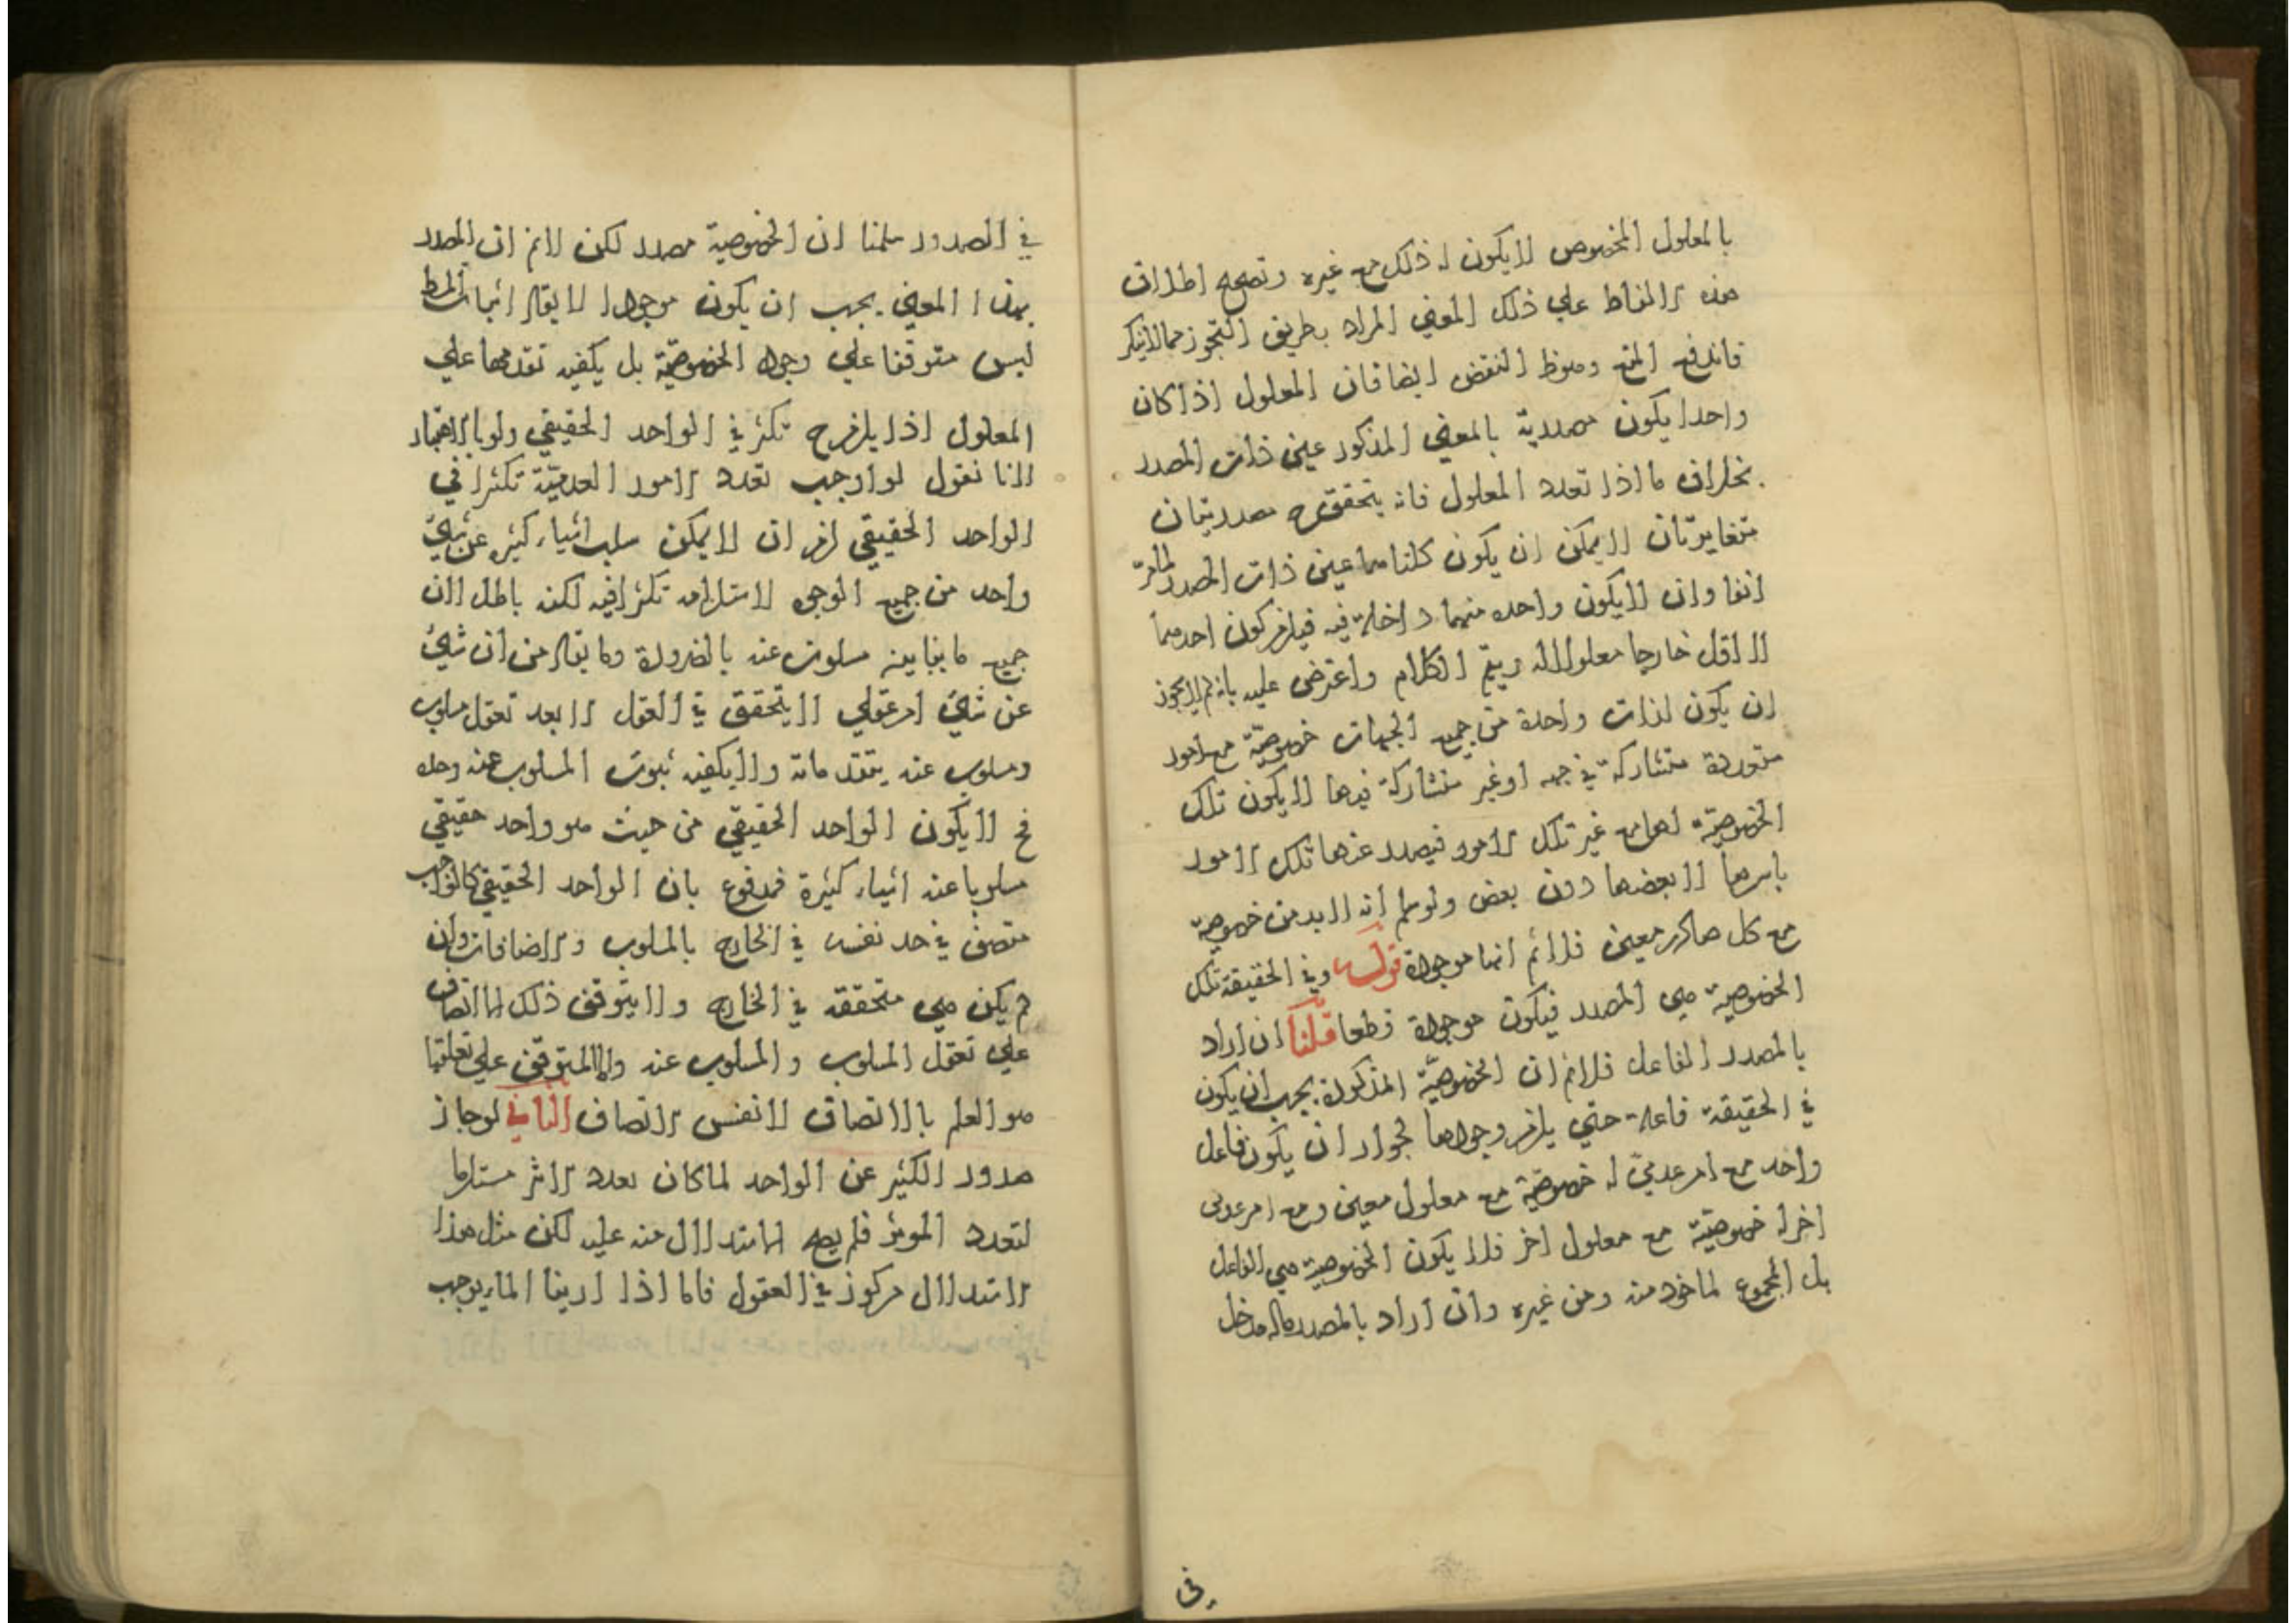 بالمعلول المخصوص لا يكون له ذلك مع غيره وتصحح اطلاق
هذه الالفاظ علي ذلك المعني المراد بطريق التجوز مما لا ينكر
فاندفع المنع وسقط النقض ايضا فان المعلول اذا كان
واحدا يكون مصدرية بالمعني المذكور عين ذات المصدر
بخلاف ما اذا تعدد المعلول فانه يتحقق ح مصدريتان
متغايرتان لا يمكن ان يكون كلتاهما عين ذات المصدر لما مر
انفا وان لا يكون واحده منهما داخلة فيه فيلزم كون احدهما
لا اقل خارجا معلولا له ويتم الكلام واعترض عليه بانه لم لا يجوز
ان يكون لذات واحدة من جميع الجهات خصوصية مع امور
متعددة متشاركة في جهه او غير متشاركة فيها لا يكون تلك
الخصوصية لها مع غير تلك الامور فيصدر عنها تلك الامور
باسرها لا بعضها دون بعض ولو سلم انه لا بد من خصوصية
مع كل صادر معين فلا نم انها موجودة قوله وفي الحقيقة تلك
الخصوصية هي المصدر فيكون موجودة قطعا قلنا ان اراد
بالمصدر الفاعل فلا نم ان الخصوصية المذكورة يجب ان يكون
في الحقيقة فاعلة حتي يلزم وجودها لجواز ان يكون فاعل
واحد مع امر عدمي له خصوصية مع معلول معين ومع امر عدمي
اخر له خصوصية مع معلول اخر فلا يكون الخصوصية هي الفاعل
بل المجموع لماخوذ منه ومن غيره وان اراد بالمصدر ماله مدخل
في
في الصدور سلمنا ان الخصوصية مصدر لكن لا نم ان المصدر
بهذا المعني يجب ان يكون موجودا لا يقال اثبات المط
ليس متوقفا علي وجود الخصوصية بل يكفيه تقدمها علي
المعلول اذ يلزم ح تكثر في الواحد الحقيقي ولو بالاعتبار
لانا نقول لو اوجب تعدد الامور العدمية تكثرا في
الواحد الحقيقي لزم ان لا يمكن سلب اشياء كثيره عن شيء
واحد من جميع الوجوه لاستلزامه تكثرا فيه لكنه باطل لان
جميع ما يباينه مسلوب عنه بالضرورة وما يقال من ان شيء
عن شيء امر عقلي لا يتحقق في العقل الا بعد تعقل مسلوب
ومسلوب عنه يتقدمانه ولا يكفيه ثبوت المسلوب عنه وحده
فح لا يكون الواحد الحقيقي من حيث هو واحد حقيقي
مسلوبا عنه اشياء كثيرة فمدفوع بان الواحد الحقيقي كالواجب
متصف في حد نفسه في الخارج بالسلوب والاضافات وان
لم يكن هي متحققه في الخارج ولا يتوقف ذلك الاتصاف
علي تعقل المسلوب والمسلوب عنه وانما المتوقف علي تعقلها
هو العلم بالاتصاف لا نفس الاتصاف الثاني لو جاز
صدور الكثير عن الواحد لما كان تعدد الاثر مستلزما
لتعدد الموثر فلم يصح الاستدلال منه عليه لكن مثل هذا
الاستدلال مركوز في العقول فانا اذا راينا الماء يوجب